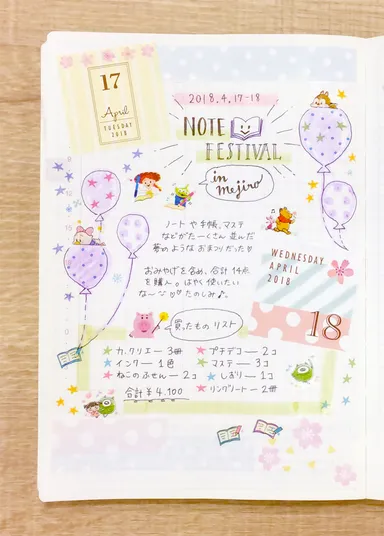 17
April
TUESDAY
2018
2018.4.17-18
NOTE
FESTIVAL
in
mejiro
ノートや手帳、マステ
などがた〜くさん並んだ
夢のようなおまつりだった♡
おみやげを含め、合計14点
を購入。はやく使いたい
な〜 たのしみ♪。
WEDNESDAY
APRIL
2018
18
買ったものリスト
★カ.クリエ — 3冊
★プチデコ — 2コ
★インク — 1色
★マステ — 3コ
★ねこのふせん — 2コ
★しおり — 1コ
合計¥4,100
★リングノート — 2冊